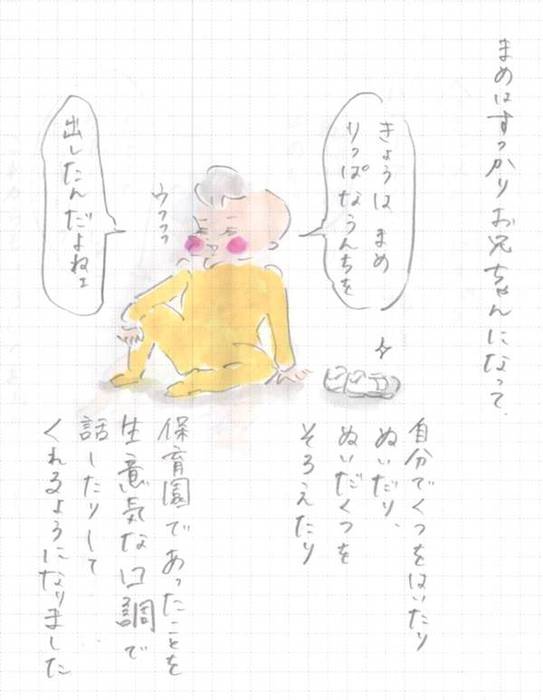 まめはすっかりお兄ちゃんになって、
自分でくつをはいたり
ぬいだり、
ぬいだくつを
そろえたり
きょうは まめ
りっぱなうんちを
出したんだよねェ
ウフフッ
保育園であったことを
生意気な口調で
話したりして
くれるようになりました